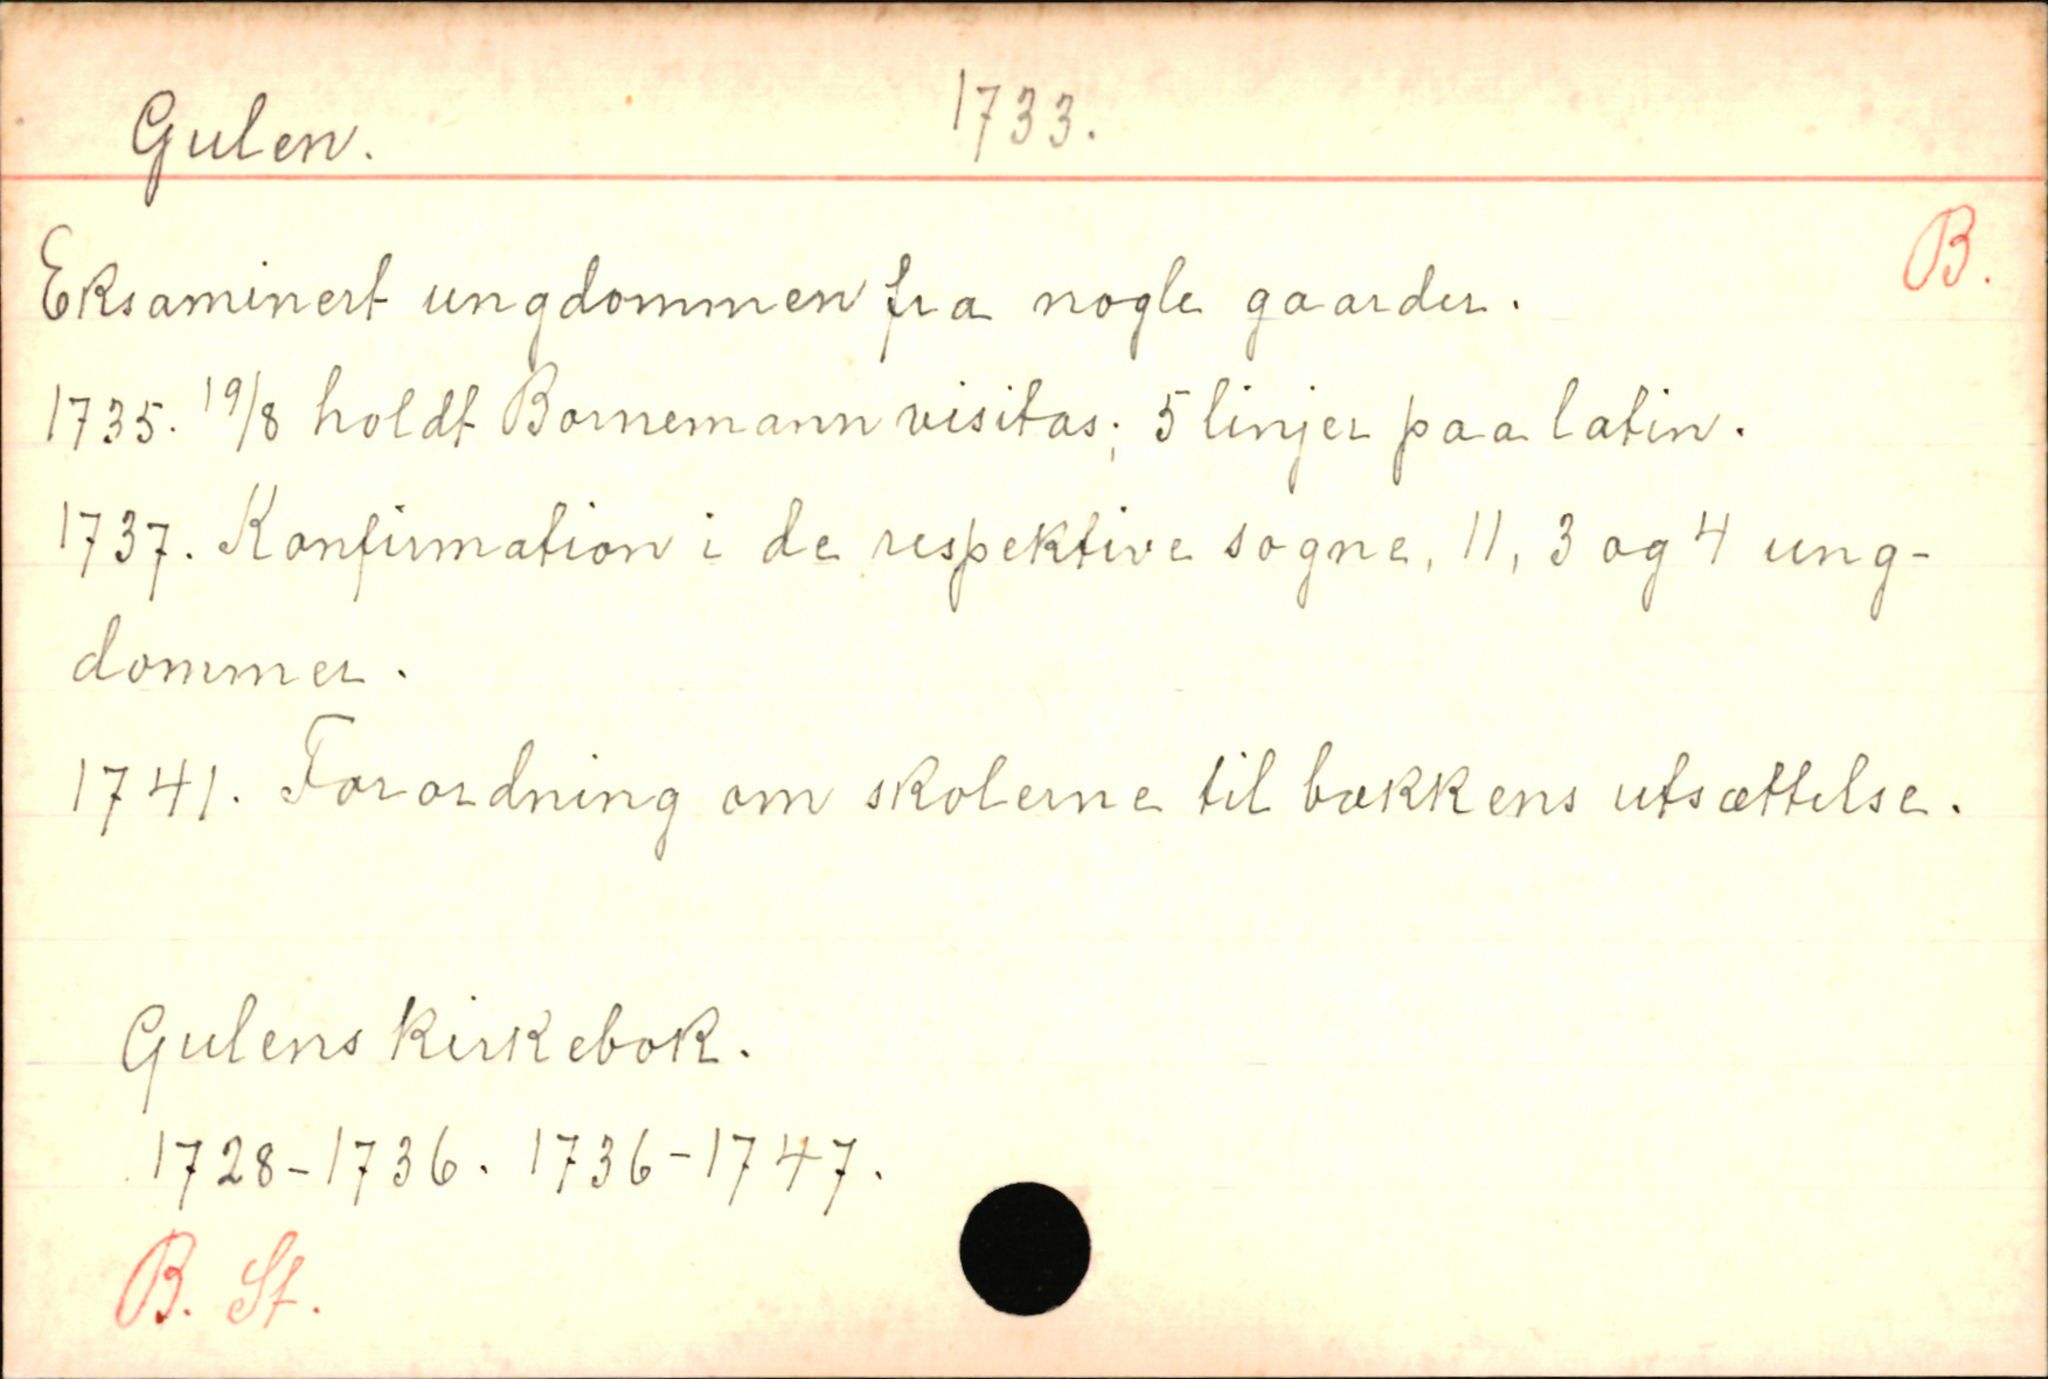 Gulen. 1733.
B.
Eksaminert ungdommen fra nogle gaarder.
1735. 19/8 holdt Bornemann visitas; 5 linjer paa latin.
1737. Konfirmation i de respektive sogne, 11, 3 og 4 ung-
dommer.
1741. Forordning om skolerne til bækkens utsættelse.
Gulens kirkebok.
1728-1736. 1736-1747.
B. St.